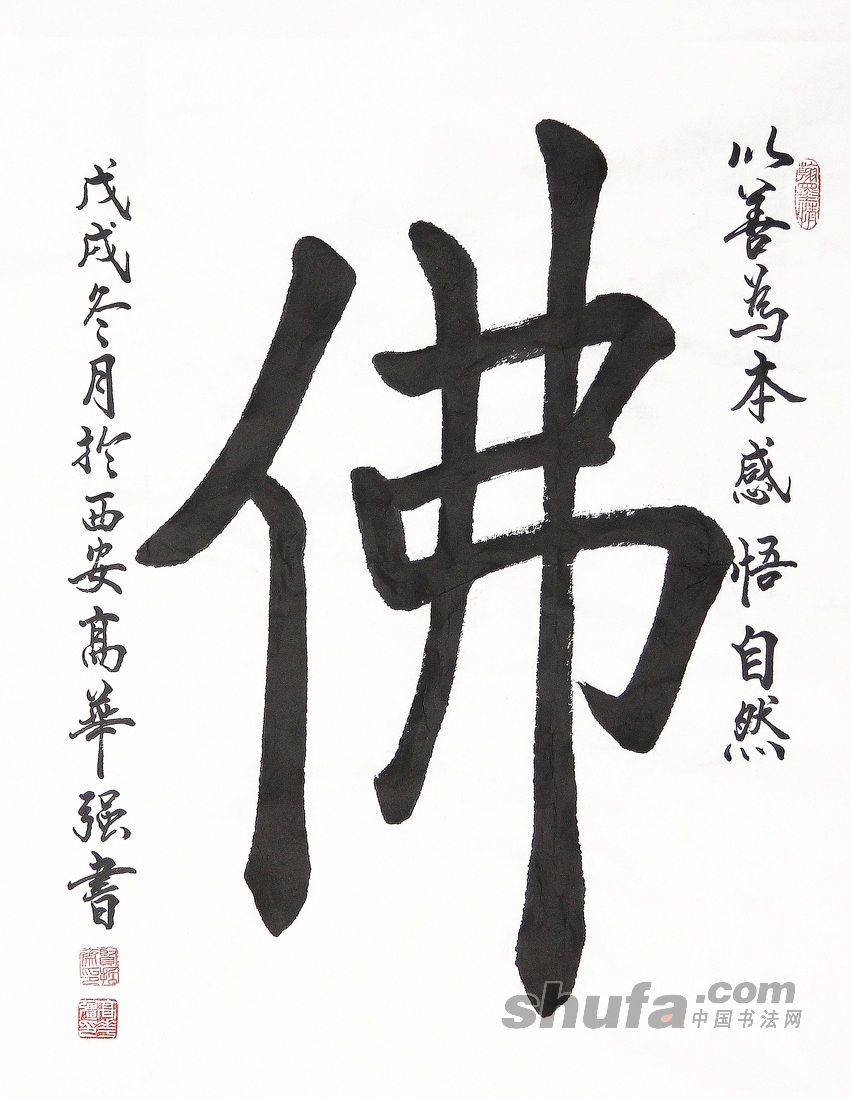 以善為本感悟自然
佛
戊戌冬月於西安高華强書
shufa.com
中国书法网